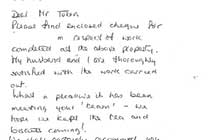 Dear Mr
Please find enclosed cheque for
in respect of work
completed at the above property.
My husband and I are thoroughly
satisfied with the work carried
out.
What a pleasure it has been
meeting your 'team' - we
hope we kept the tea and
biscuits coming!